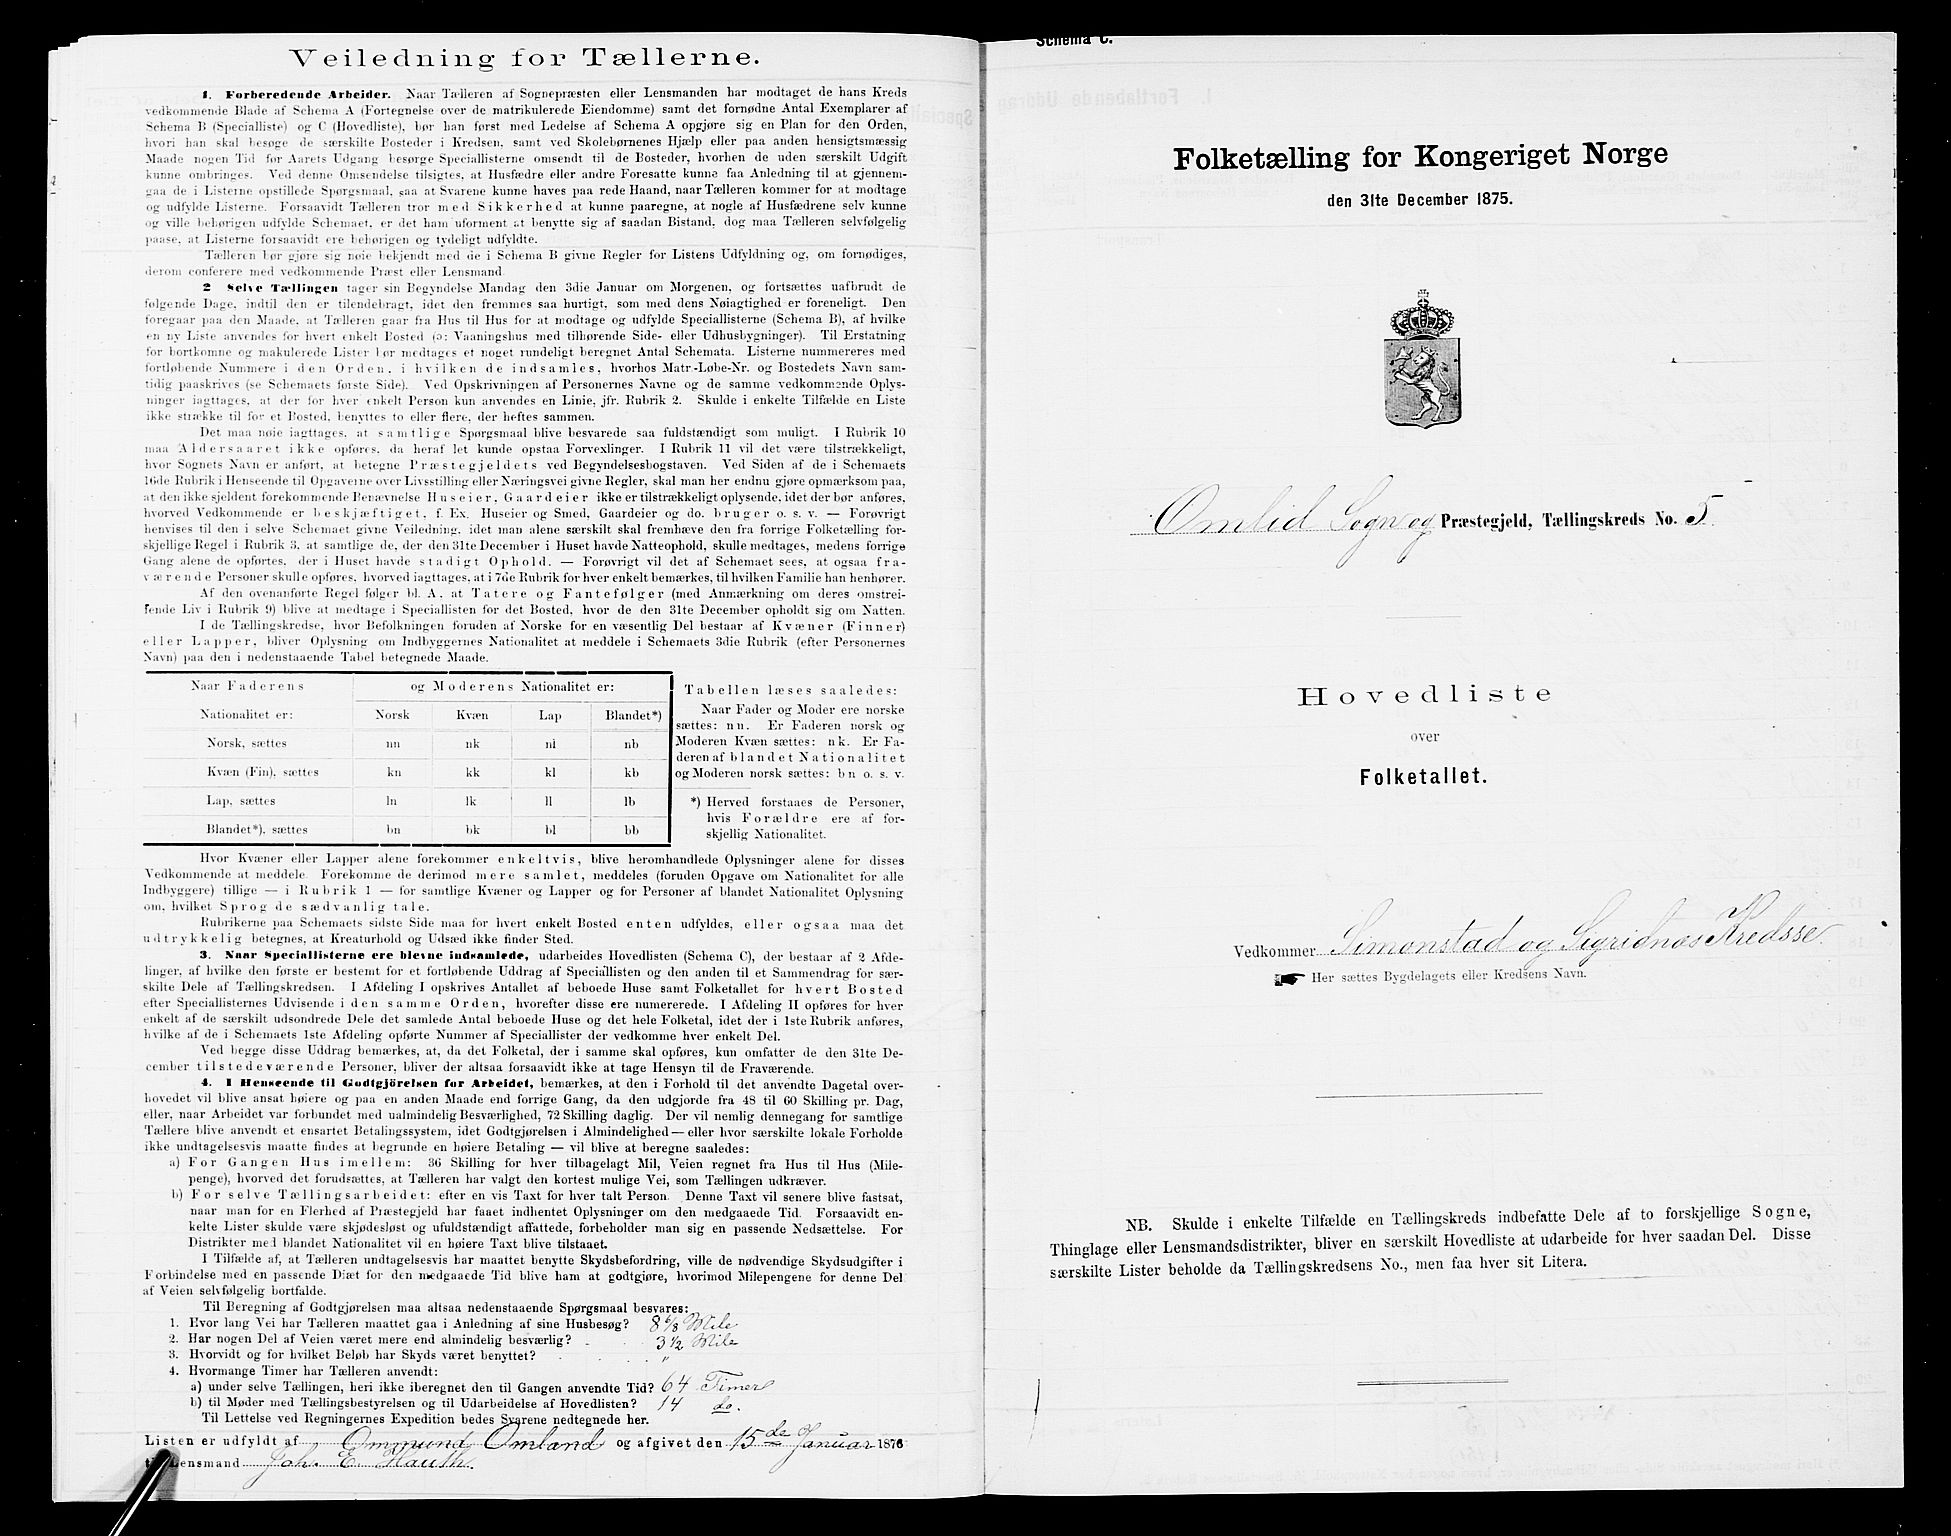 Veiledning for Tællerne.
1. Forberedende Arbeider. Naar Tælleren af Sognepræsten eller Lensmanden har modtaget de hans Kreds
vedkommende Blade af Schema A (Fortegnelse over de matrikulerede Eiendomme) samt det fornødne Antal Exemplarer af
Schema B (Specialliste) og C (Hovedliste), bør han først med Ledelse af Schema A opgjøre sig en Plan for den Orden,
hvori han skal besøge de særskilte Bosteder i Kredsen, samt ved Skolebørnenes Hjælp eller paa anden hensigtsmæssig
Maade nogen Tid før Aarets Udgang besørge Speciallisterne omsendt til de Bosteder, hvorhen de uden særskilt Udgift
kunne ombringes. Ved denne Omsendelse tilsigtes, at Husfædre eller andre Foresatte kunne faa Anledning til at gjennem-
gaa de i Listerne opstillede Spørgsmaal, saa at Svarene kunne haves paa rede Haand, naar Tælleren kommer for at modtage
og udfylde Listerne. Forsaavidt Tælleren tror med Sikkerhed at kunne paaregne, at nogle af Husfædrene selv kunne
og ville behørigen udfylde Schemaet, er det ham uforment at benytte sig af saadan Bistand, dog maa Tælleren selvfølgelig
paase, at Listerne forsaavidt ere behørigen og tydeligt udfyldte.
Tælleren bør gjøre sig nøie bekjendt med de i Schema B givne Regler for Listens Udfyldning og, om fornødiges,
derom conferere med vedkommende Præst eller Lensmand.
2 Selve Tællingen tager sin Begyndelse Mandag den 3die Januar om Morgenen, og fortsættes uafbrudt de
følgende Dage, indtil den er tilendebragt, idet den fremmes saa hurtigt, som med dens Nøiagtighed er foreneligt. Den
foregaar paa den Maade, at Tælleren gaar fra Hus til Hus for at modtage og udfylde Speciallisterne (Schema B), af hvilke
en ny Liste anvendes for hvert enkelt Bosted (ɔ: Vaaningshus med tilhørende Side- eller Udhusbygninger). Til Erstatning
for bortkomne og makulerede Lister bør medtages et noget rundeligt beregnet Antal Schemata. Listerne nummereres med
fortløbende Nummere i den Orden, i hvilken de indsamles, hvorhos Matr.-Løbe-Nr. og Bostedets Navn sam-
tidig paaskrives (se Schemaets første Side). Ved Opskrivningen af Personernes Navne og de samme vedkommende Oplys-
ninger iagttages, at der for hver enkelt Person kun anvendes en Linie, jfr. Rubrik 2. Skulde i enkelte Tilfælde en Liste
ikke strække til for et Bosted, benyttes to eller flere, der heftes sammen.
Det maa nøie iagttages, at samtlige Spørgsmaal blive besvarede saa fuldstændigt som muligt. I Rubrik 10
maa Aldersaaret ikke opføres, da heraf let kunde opstaa Forvexlinger. I Rubrik 11 vil det være tilstrækkeligt,
hvor Sognets Navn er anført, at betegne Præstegjeldets ved Begyndelsesbogstaven. Ved Siden af de i Schemaets
16de Rubrik i Henseende til Opgaverne over Livsstilling eller Næringsvei givne Regler, skal man her endnu gjøre opmærksom paa,
at den ikke sjeldent forekommende Benævnelse Huseier, Gaardeier ikke er tilstrækkeligt oplysende, idet der bør anføres,
hvorved Vedkommende er beskjæftiget, f. Ex. Huseier og Smed, Gaardeier og do. bruger o. s. v. — Forøvrigt
henvises til den i selve Schemaet givne Veiledning, idet man alene særskilt skal fremhæve den fra forrige Folketælling for-
skjellige Regel i Rubrik 3, at samtlige de, der den 31te December i Huset havde Natteophold, skulle medtages, medens forrige
Gang alene de opførtes, der i Huset havde stadigt Ophold. — Forøvrigt vil det af Schemaet sees, at ogsaa fra-
værende Personer skulle opføres, hvorved iagttages, at i 7de Rubrik for hver enkelt bemærkes, til hvilken Familie han henhører.
Af den ovenanførte Regel følger bl. A. at Tatere og Fantefølger (med Anmærkning om deres omstrei-
fende Liv i Rubrik 9) blive at medtage i Speciallisten for det Bosted, hvor de den 31te December opholdt sig om Natten.
I de Tællingskredse, hvor Befolkningen foruden af Norske for en væsentlig Del bestaar af Kvæner (Finner)
eller Lapper, bliver Oplysning om Indbyggernes Nationalitet at meddele i Schemaets 3die Rubrik (efter Personernes
Navn) paa den i nedenstaaende Tabel betegnede Maade.
Naar Faderens og Moderens Nationalitet er:
Nationalitet er: Norsk Kvæn Lap Blandet*)
Norsk, sættes nn nk nl nb
Kvæn (Fin), sættes kn kk kl kb
Lap, sættes ln lk ll lb
Blandet*), sættes bn bk bl bb
Tabellen læses saaledes:
Naar Fader og Moder ere norske
sættes: nn. Er Faderen norsk og
Moderen Kvæn sættes: nk. Er Fa-
deren af blandet Nationalitet
og Moderen norsk sættes: bn o. s. v.
*) Herved forstaaes de Personer,
hvis Forældre ere af for-
skjellig Nationalitet.
Hvor Kvæner eller Lapper alene forekommer enkeltvis, blive heromhandlede Oplysninger alene for disses
Vedkommende at meddele. Forekomme de derimod mere samlet, meddeles (foruden Opgave om Nationalitet for alle
Indbyggere) tillige — i Rubrik 1 — for samtlige Kvæner og Lapper og for Personer af blandet Nationalitet Oplysning
om, hvilket Sprog de sædvanlig tale.
Rubrikerne paa Schemaets sidste Side maa for hvert enkelt Bosted enten udfyldes, eller ogsaa maa det
udtrykkelig betegnes, at Kreaturhold og Udsæd ikke finder Sted.
3. Naar Speciallisterne ere blevne indsamlede, udarbeides Hovedlisten (Schema C), der bestaar af 2 Afde-
linger, af hvilke den første er bestemt for et fortløbende Uddrag af Speciallisten og den anden til et Sammendrag for sær-
skilte Dele af Tællingskredsen. I Afdeling I opskrives Antallet af beboede Huse samt Folketallet for hvert Bosted
efter Speciallisternes Udvisende i den samme Orden, hvorefter disse ere numererede. I Afdeling II opføres for hver
enkelt af de særskilt udsondrede Dele det samlede Antal beboede Huse og det hele Folketal, idet der i 1ste Rubrik anføres,
hvilke af de i Schemaets 1ste Afdeling opførte Nummer af Speciallister der vedkomme hver enkelt Del.
Ved begge disse Uddrag bemærkes, at, da det Folketal, der i samme skal opføres, kun omfatter de den 31te De-
cember tilstedeværende Personer, bliver der altsaa forsaavidt ikke at tage Hensyn til de Fraværende.
4. I Henseende til Godtgjörelsen for Arbeidet, bemærkes, at den i Forhold til det anvendte Dagetal over-
hovedet vil blive ansat høiere og paa en anden Maade end forrige Gang, da den udgjorde fra 48 til 60 Skilling pr. Dag,
eller, naar Arbeidet var forbundet med ualmindelig Besværlighed, 72 Skilling daglig. Der vil nemlig dennegang for samtlige
Tællere blive anvendt et ensartet Betalingssystem, idet Godtgjørelsen i Almindelighed — eller hvor særskilte lokale Forholde
ikke undtagelsesvis maatte findes at begrunde en høiere Betaling — vil blive at beregne saaledes:
a) For Gangen Hus imellem: 36 Skilling for hver tilbagelagt Mil, Veien regnet fra Hus til Hus (Mile-
penge), hvorved det forudsættes, at Tælleren har valgt den kortest mulige Vei, som Tællingen udkræver.
b) For selve Tællingsarbeidet: efter en vis Taxt for hver talt Person. Denne Taxt vil senere blive fastsat,
naar man for en Flerhed af Præstegjeld har faaet indhentet Oplysninger om den medgaaede Tid. Forsaavidt en-
kelte Lister skulde være skjødesløst og ufuldstændigt affattede, forbeholder man sig en passende Nedsættelse. For
Distrikter med blandet Nationalitet vil en høiere Taxt blive tilstaaet.
I Tilfælde af, at Tælleren undtagelsesvis har maattet benytte Skydsbefordring, ville de nødvendige Skydsudgifter i
Forbindelse med en passende Diæt for den medgaaede Tid blive ham at godtgjøre, hvorimod Milepengene for denne Del
af Veien selvfølgelig bortfalde.
Til Beregning af Godtgjørelsen maa altsaa nedenstaaende Spørgsmaal besvares:
1. Hvor lang Vei har Tælleren maattet gaa i Anledning af sine Husbesøg? 8 6/8 Mile
2. Har nogen Del af Veien været mere end almindelig besværlig? 3 1/2 Mile
3. Hvorvidt og for hvilket Beløb har Skyds været benyttet? "
4. Hvormange Timer har Tælleren anvendt:
a) under selve Tællingen, heri ikke iberegnet den til Gangen anvendte Tid? 64 Timer
b) til Møder med Tællingsbestyrelsen og til Udarbeidelse af Hovedlisten? 14 do.
Til Lettelse ved Regningernes Expedition bedes Svarene nedtegnede her.
Listen er udfyldt af Ommund Omland og afgivet den 15de Januar 1876
til Lensmand Joh. E. Hauth.
Schema C.
Folketælling for Kongeriget Norge
den 31te December 1875.
Omlid Sogn og Præstegjeld, Tællingskreds No. 5.
Hovedliste
over
Folketallet.
Vedkommer Simonstad og Sigridnæs Kredsse.
Her sættes Bygdelagets eller Kredsens Navn.
NB. Skulde i enkelte Tilfælde en Tællingskreds indbefatte Dele af to forskjellige Sogne,
Thinglage eller Lensmandsdistrikter, bliver en særskilt Hovedliste at udarbeide for hver saadan Del. Disse
særskilte Lister beholde da Tællingskredsens No., men faa hver sit Litera.